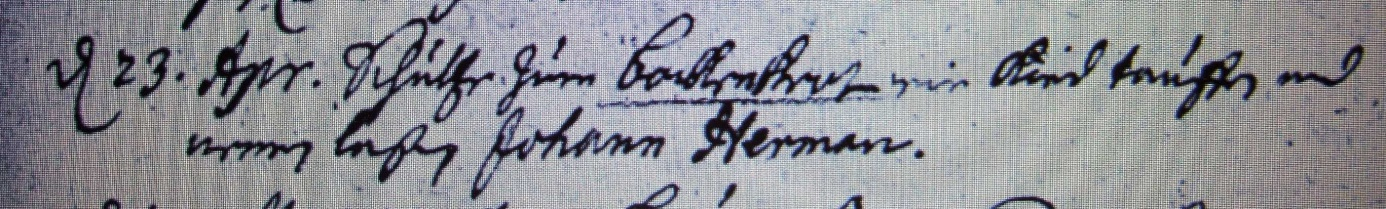 d 23. Apr. Schultze zum Bockenkrat ein Kind tauffen und
nennen laßen Johann Herman.